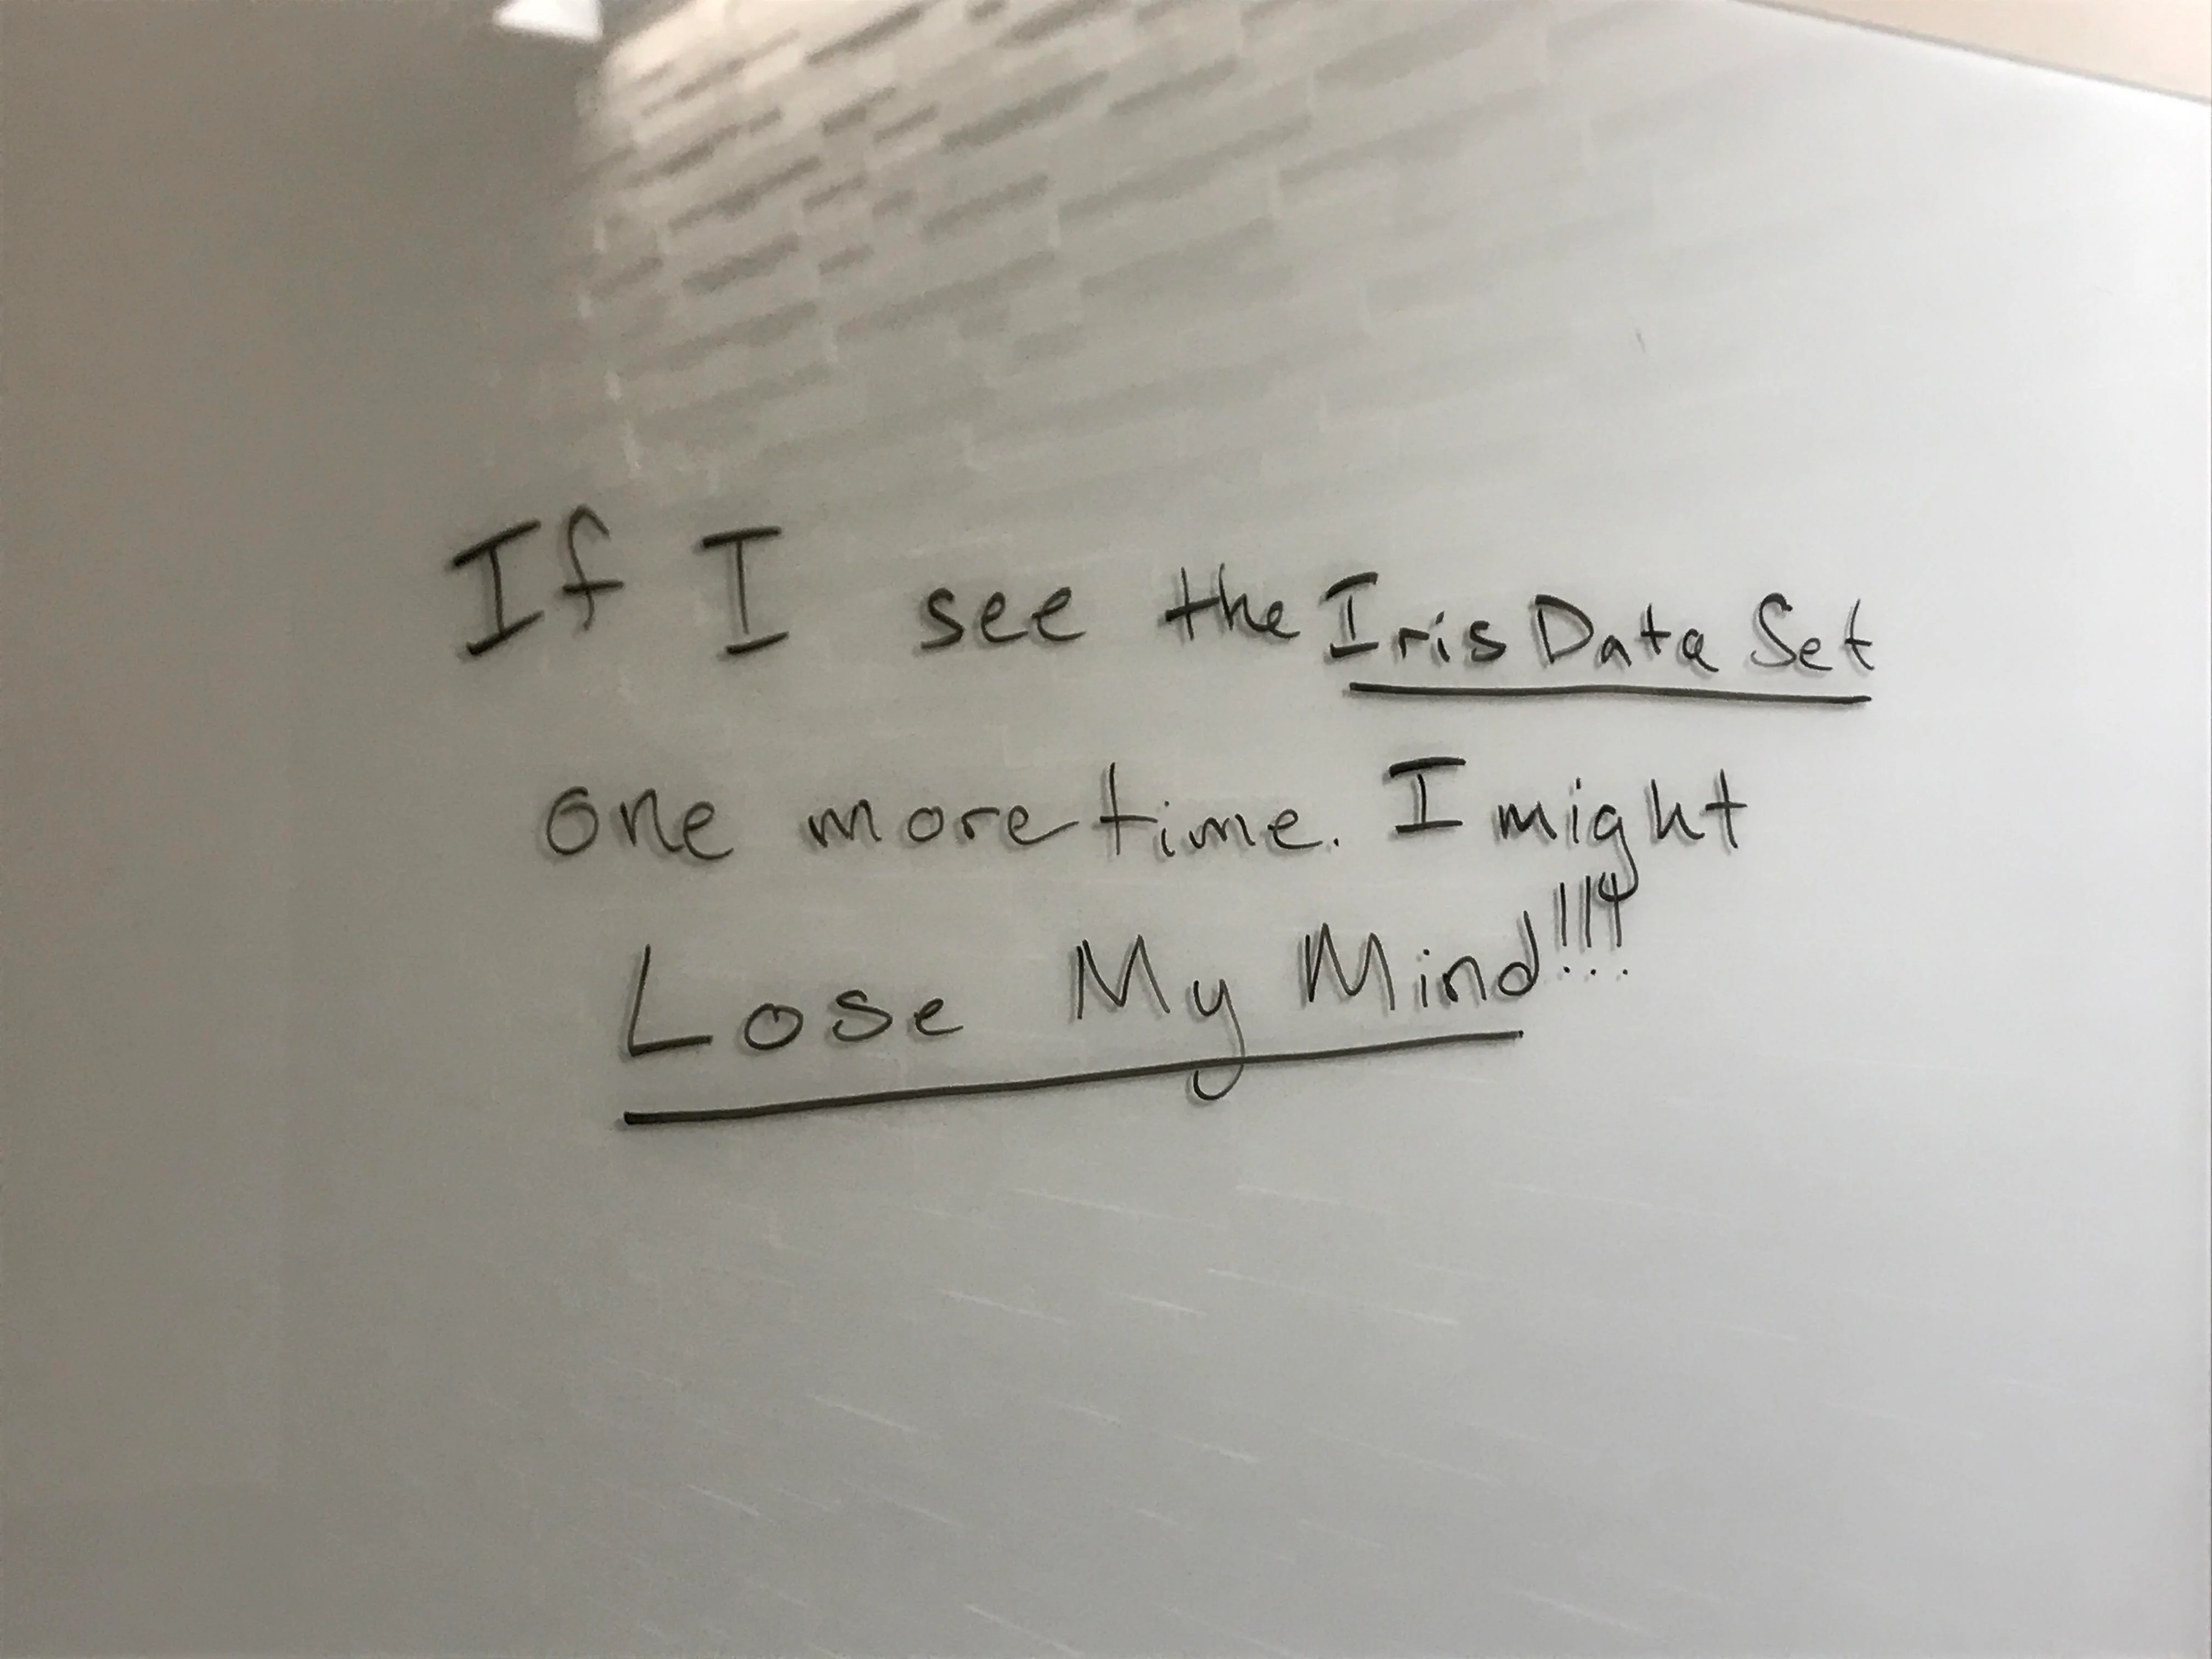 If I see the Iris Data Set
one more time. I might
Lose My Mind!!!